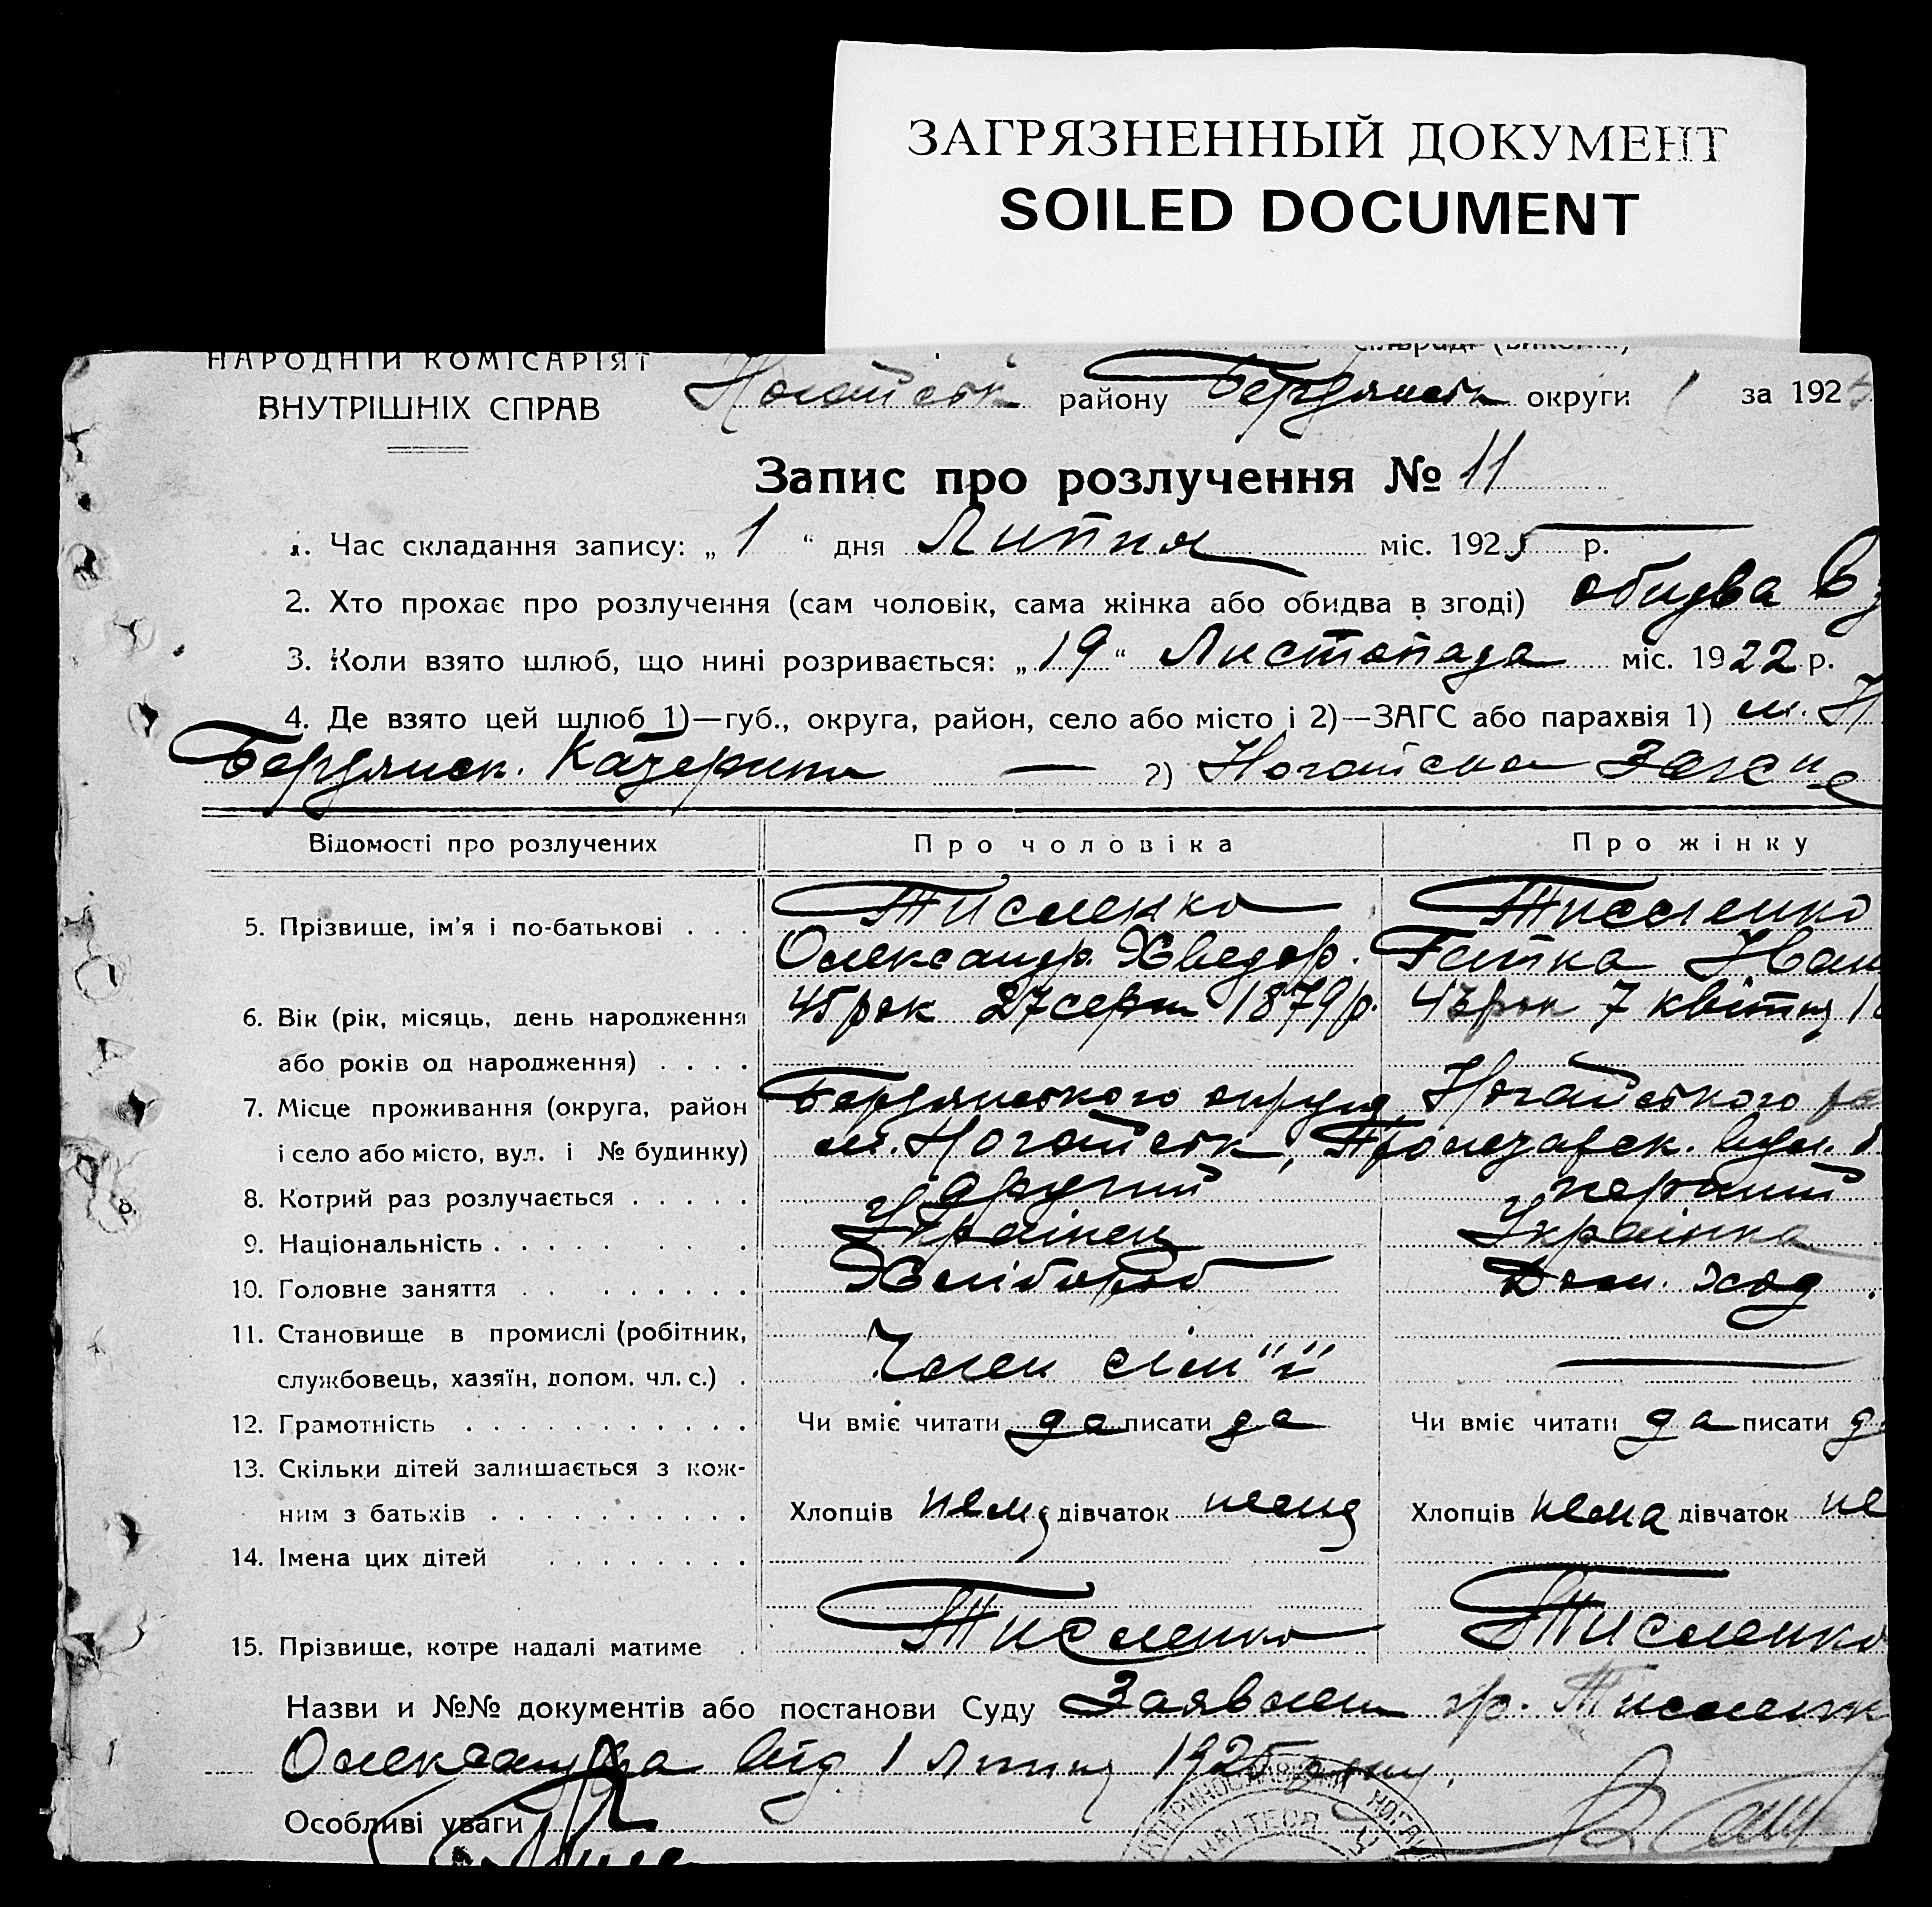 ЗАГРЯЗНЕННЫЙ ДОКУМЕНТ
SOILED DOCUMENT
НАРОДНІЙ КОМІСАРІЯТ
ВНУТРІШНІХ СПРАВ
Ногайськ району Бердянськ округи за 1925
Запис про розлучення № 11
1. Час складання запису: „ 1 “ дня Липня міс. 1925 р.
2. Хто прохає про розлучення (сам чоловік, сама жінка або обидва в згоді) обидва в
3. Коли взято шлюб, що нині розривається: „ 19 “ Листопада міс. 1922 р.
4. Де взято цей шлюб 1)—губ., округа, район, село або місто і 2)—ЗАГС або парахвія 1) м. Н
Бердянск. Катерин — 2)
Відомості про розлучених Про чоловіка Про жінку
5. Прізвище, ім'я і по-батькові . . . Тисленко Тисленко
Олександр Хведор. Ганна Іван
6. Вік (рік, місяць, день народження 45 рок 27 серп 1879 р. 7 квітня 1
або років од народження) . . . .
7. Місце проживання (округа, район Бердянського округа, Ногайського
і село або місто, вул. і № будинку) м. Ногайськ,
8. Котрий раз розлучається . . . . . другий перший
9. Національність . . . . . Українец Українка
10. Головне заняття . . . . . Хлібороб Дом. ход.
11. Становище в промислі (робітник,
службовець, хазяїн, допом. чл. с.) . Член сім"ї —
12. Грамотність . . . . . Чи вміє читати да писати да Чи вміє читати да писати
13. Скільки дітей залишається з кож-
ним з батьків . . . . . Хлопців нема дівчаток нема Хлопців нема дівчаток не
14. Імена цих дітей . . . . .
15. Прізвище, котре надалі матиме . Тисленко Тисленко
Назви и №№ документів або постанови Суду Заявлен гр. Тисленк
Олександра від 1 липня 1925 року.
Особливі уваги